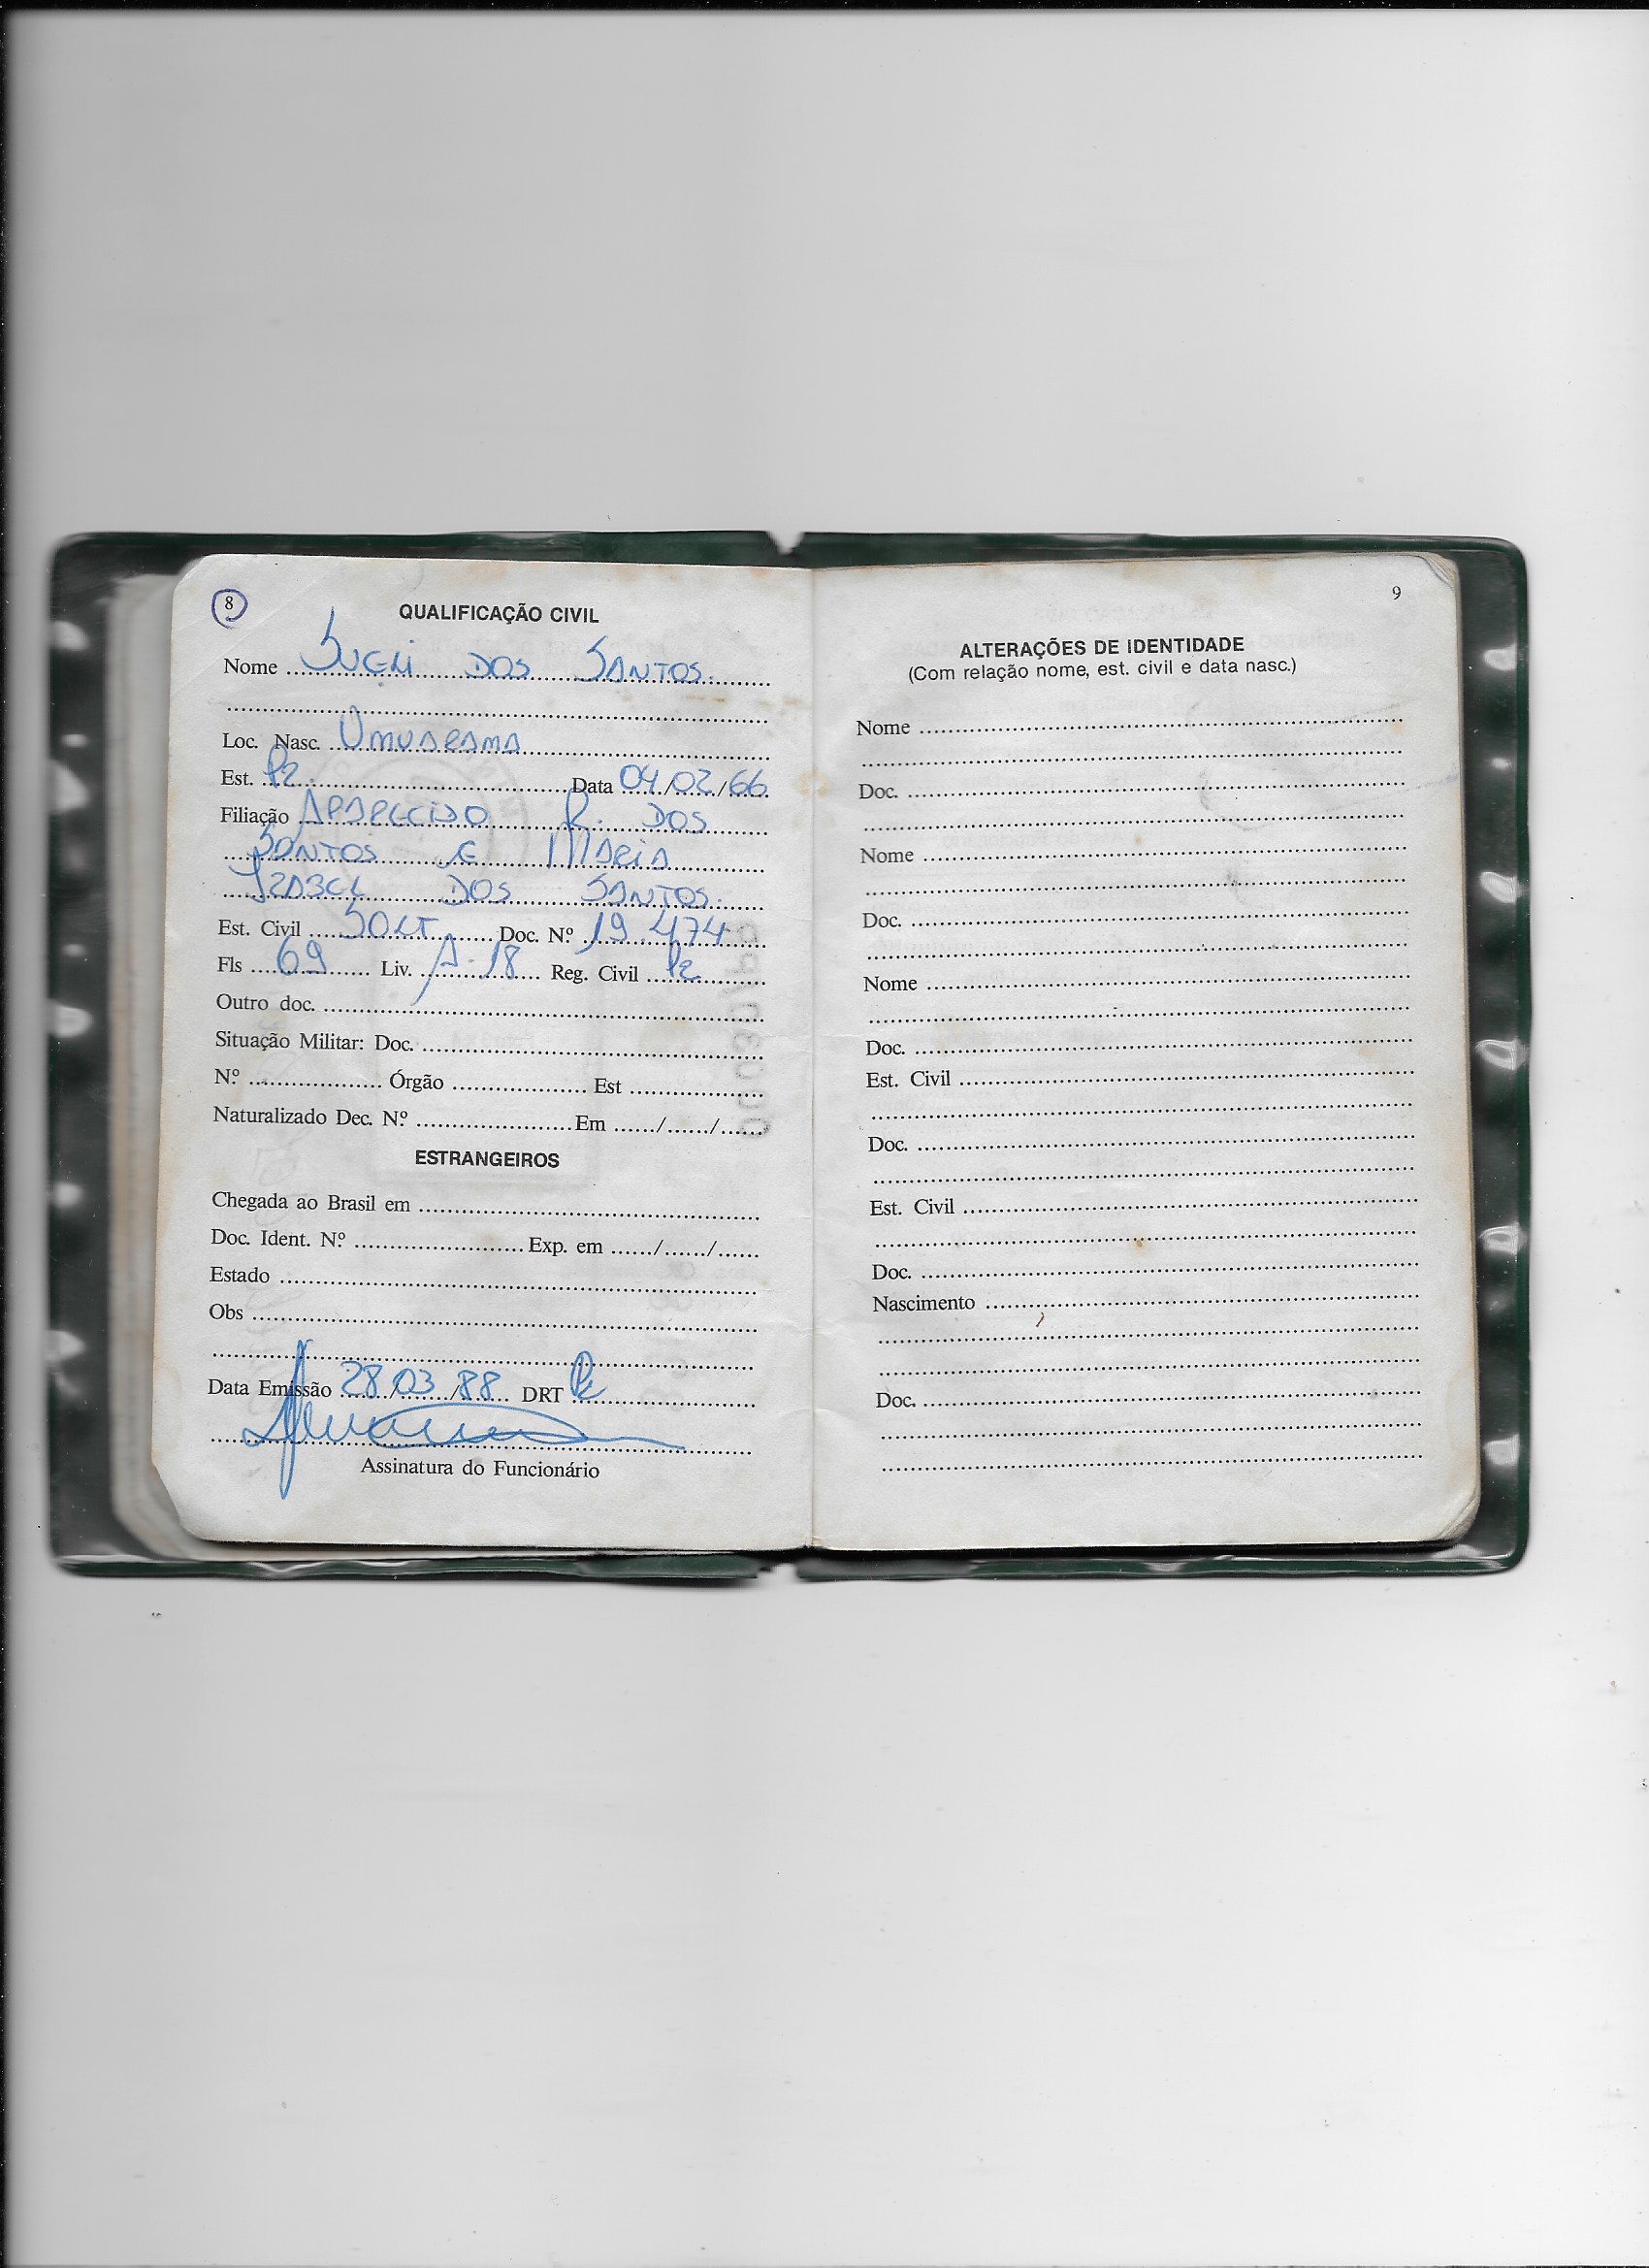 8
QUALIFICAÇÃO CIVIL
Nome SUELI DOS SANTOS.
Loc. Nasc. UMUARAMA
Est. Pr. Data 04/02/66
Filiação APARECIDO R. DOS
SANTOS E MARIA
IZABEL DOS SANTOS.
Est. Civil SOLT. Doc. N.º 19.474
Fls 69 Liv. A-18 Reg. Civil Pr
Outro doc.
Situação Militar: Doc.
N.º Órgão Est
Naturalizado Dec. N.º Em ....../....../......
ESTRANGEIROS
Chegada ao Brasil em
Doc. Ident. N.º Exp. em ....../....../......
Estado
Obs
Data Emissão 28/03/88 DRT Pr
Assinatura do Funcionário
9
ALTERAÇÕES DE IDENTIDADE
(Com relação nome, est. civil e data nasc.)
Nome
Doc.
Nome
Doc.
Nome
Doc.
Est. Civil
Doc.
Est. Civil
Doc.
Nascimento
Doc.